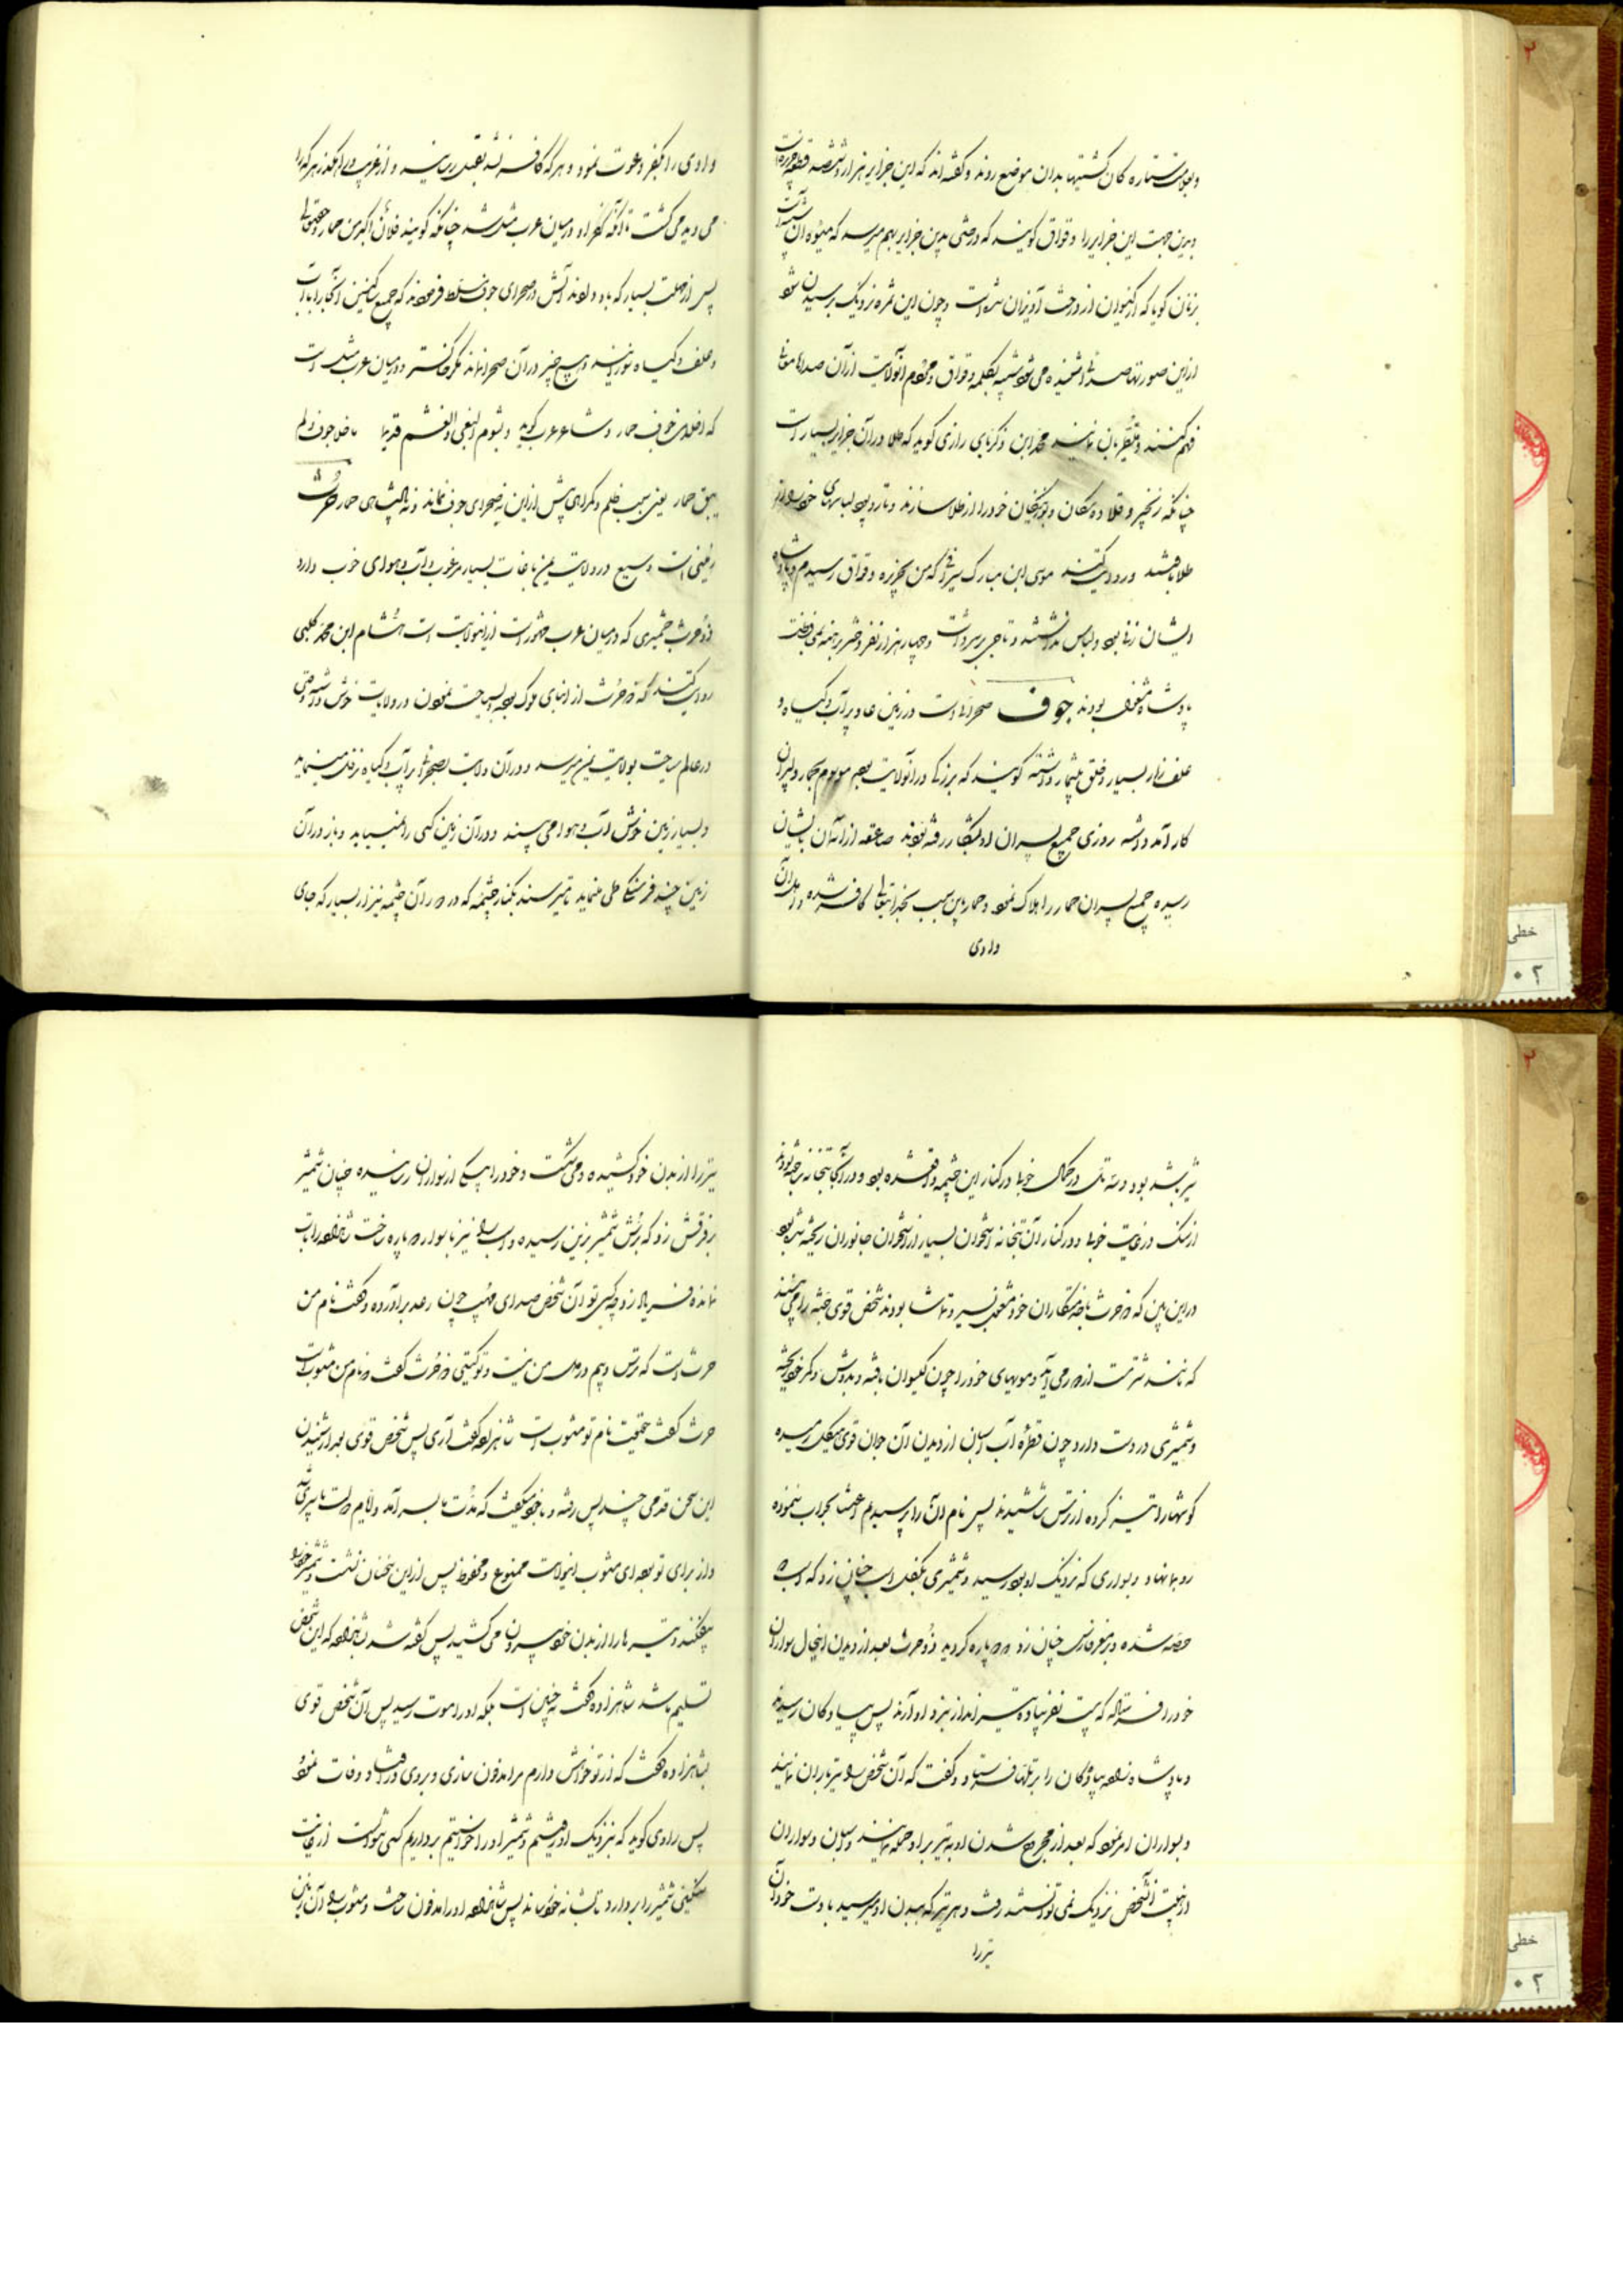 و بعلامت ستاره کان کشتیها بدان موضع روند و گفته اند که این جزایر هزار و ششصد قطعه جزیره است
و بدین جهت این جزایر را وقواق گویند که درختی بدین جزایر بهم میرسد که میوه آن
زنان گویا که از گیسوان از درخت آویزان شده است و چون این ثمره نزدیک برسیدن شود
از این صورتها صدائی شنیده می شود شبیه بکلمه وقواق و مردم آنولایت از آن صداها معانی
فهم کنند و تطیر بآن نمایند محمد ابن زکریای رازی گوید که طلا در آن جزایر بسیار است
چنانکه زنجیر و قلاده سگان و بوزینگان خود را از طلا سازند و تار و پود لباسهای خود را از
طلا بافند و روایت کنند موسی ابن مبارک سیرافی که من بجزیره وقواق رسیدم و پادشاه
ایشان زنی بود و لباس نداشتند و تاجی بر سر داشت و چهار هزار نفر دختر برهنه نمی
پادشاه مشغول بودند جوف صحرائیست در زمین عاد پر آب و گیاه و
علف زار بسیار و خلق بیشمار داشته گویند که بزرگی در آنولایت بود موسوم بحمار و پسران
کار آمد داشته روزی جمیع پسران او بشکار رفته بودند صاعقه از آسمان بایشان
رسیده جمیع پسران حمار را هلاک نمود و حمار باین سبب بخدایتعالی کافر شده و اهل آن
وادی
وادی را بکفر دعوت نمود و هر که کافر نشد بقتل رسانید و از غریب و راهگذر هر که را
می دید می کشت تا آنکه کفر او در میان عرب مثل شد چنانکه گویند فلان اکفر من حمار و حقتعالی
پس از مهلت بسیار که باو داد آتش در صحرای جوف مسلط فرمود که جمیع ساکنین آنجا را با آب
و علف و گیاه سوزانید و هیچ چیز در آن صحرا نماند مگر خاکستر و در میان عرب مثل است
که اخلی من جوف حمار و شاعر عرب گوید و بشوم البغی و الغشم قدیما ما خلا جوف و لم
یبق حمار یعنی بسبب ظلم و گمراهی پیش از این نه صحرای جوف ماند و نه پادشاهی حمار حرث
زمینی است وسیع در ولایت یمن باغات بسیار مرغوب و آب و هوای خوب دارد
ذو حرث حمیری که در میان عرب مشهور است از اینولایت است هشام ابن محمد کلبی
روایت کند که ذو حرث از ابنای ملوک بود بسیاحت نمودن در ولایت خوش داشته وقتی
در عالم سیاحت بولایت یمن میرسد و در آن ولایت بصحرائی پر آب و گیاه نزول مینماید
و بسیار زمین خوش آب و هوا می بیند و در آن زمین کسی را نمییابد و باز در آن
زمین چند فرسنگی طی مینماید تا میرسند بکنار چشمه که در دور آن چشمه نیزار بسیار که جای
شیر باشد بود و بتی در کمال خوبی در کنار این چشمه واقع شده بود و در آنجا بتخانه ساخته بودند
از سنگ در غایت خوبی و در کنار آن بتخانه استخوان بسیار از استخوان جانوران ریخته شده بود
در این بین که ذو حرث با خدمتکاران خود مشغول بسیر و تماشا بودند شخص قوی جثه را می بینند
که مانند شتر مست از دور می آید و مویهای خود را چون گیسوان بافته و بدوش و کمر خود ریخته
و شمشیری در دست دارد چون قطره آب اسبان از دیدن آن جوان قوی هیکل رمیده
گوشها را تیز کرده از ترس شاشیدند پس نام آن را پرسیدیم اعتنا بجواب ننموده
رو بما نهاد و بسواری که نزدیک او بود رسید و شمشیری بکفل اسب چنان زد که اسب دو
حصه شده و بر مغز فارس چنان زد دو پاره گردید ذو حرث بعد از دیدن اینحال سواران
خود را فرستاد که بیست نفر پیاده تیر انداز نزد او آرند پس پیادگان رسیده
و پادشاه زاده پیادگان را بر تلها فرستاد و گفت که آن شخص را تیرباران نمایند
و بسواران امر نمود که بعد از مجروح شدن او به تیر بر او حمله نمایند و اسبان و سواران
از هیبت آنشخص نزدیک نمی توانستند رفت و هر تیر که ببدن او میرسید با دست خود آن
تیر را
تیر را از بدن خود کشیده و می شکست و خود را بیکی از سواران رسانیده چنان شمشیر
بر فرقش زد که برش شمشیر بزمین رسیده و اسب را نیز با سوار دو پاره ساخت شاهزاده را تاب
نمانده فریاد زد چه کسی تو آن شخص صدای مهیب چون رعد برآورده و گفت نام من
حرث است که ترس و بیم در دل من نیست و تو کیستی ذو حرث گفت نام من مثوب است
حرث گفت حقیقت نام تو مثوب است شاهزاده گفت آری پس شخص قوی بعد از شنیدن
این سخن قدمی چند پس رفته و با خود میگفت که مدت بسر آمد و ایام دولت بآخر رسید
و از برای تو بود ای مثوب اینولایت ممنوع و محفوظ پس از این سخنان نشست و شمشیر خود را
بیفکند و تیرها را از بدن خود بیرون می کشید پس گفته شد بشاهزاده که این شخص
تسلیم ما شد شاهزاده گفت نه چنین است بلکه او را موت رسید پس آن شخص قوی
بشاهزاده گفت که از تو خواهش دارم مرا مدفون سازی و بر روی در افتاد و وفات نمود
پس راوی گوید که نزدیک او رفتیم و شمشیر او را خواستیم برداریم کسی نتوانست از غایت
سنگینی شمشیر را بردارد تا بشانه خود رساند پس شاهزاده او را مدفون ساخت و مثوب را آن زمین
خطی
۰۲
خطی
۰۲